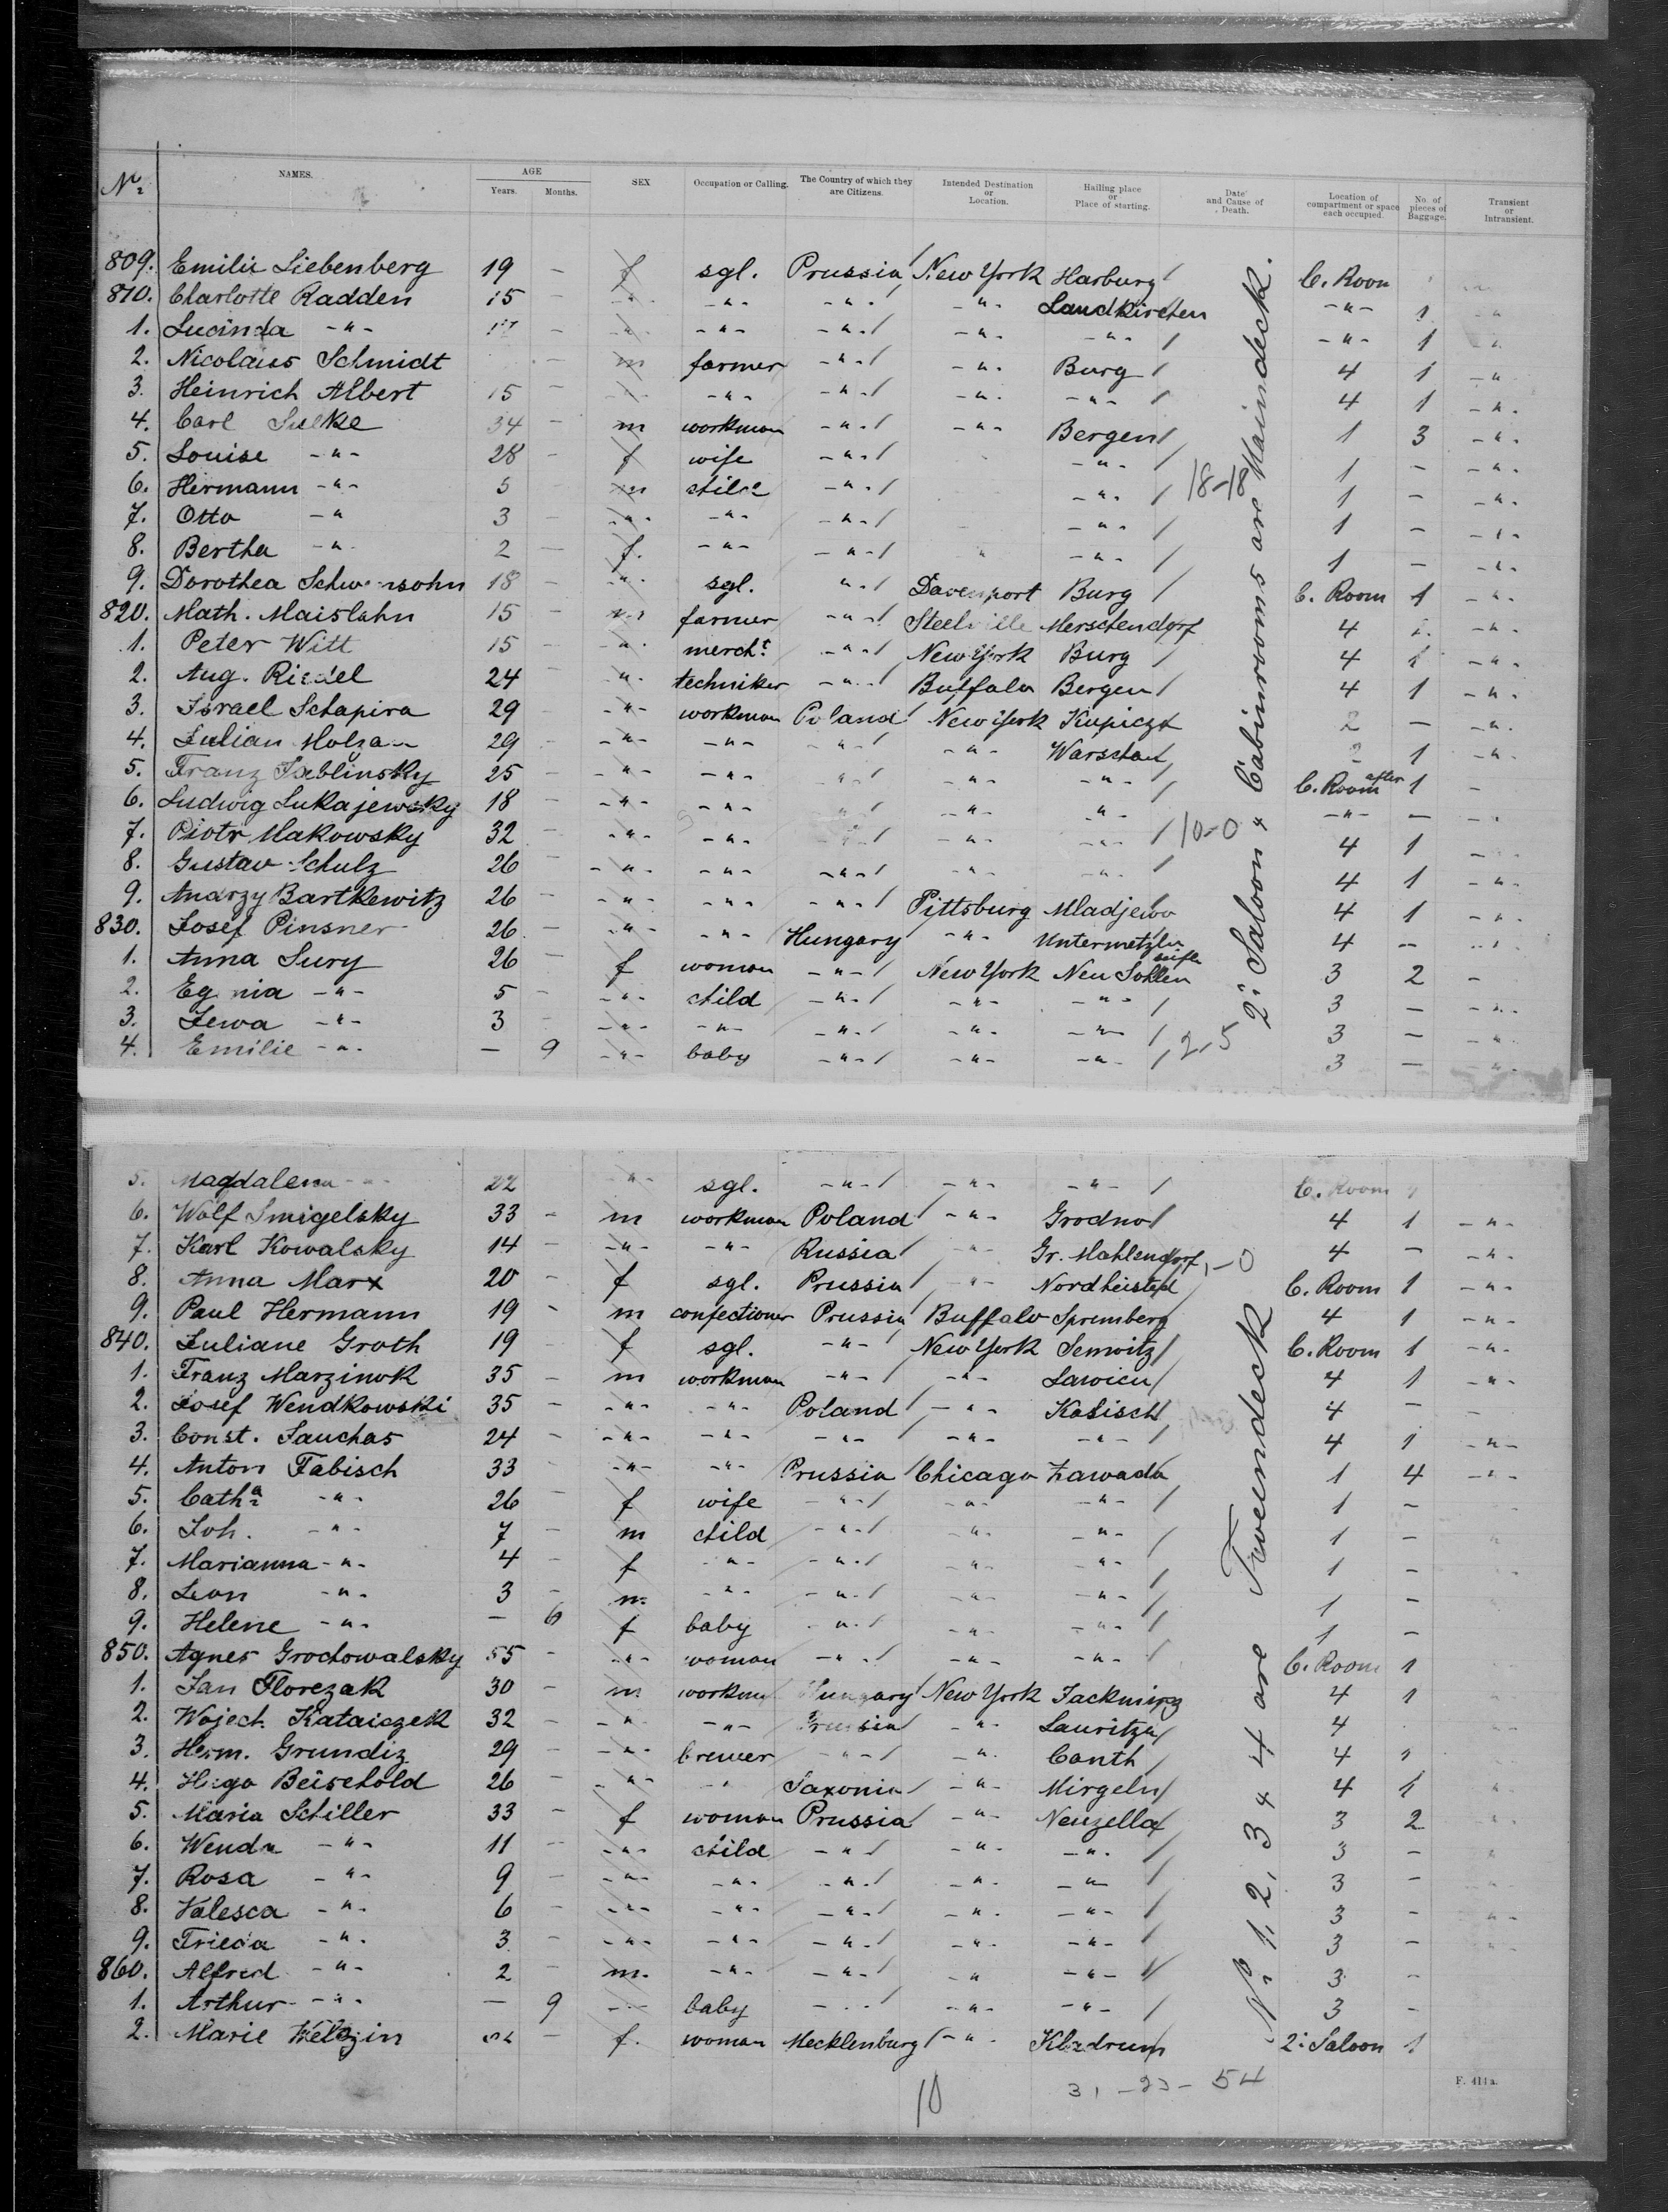 No. NAMES. AGE Years. Months. SEX Occupation or Calling. The Country of which they are Citizens. Intended Destination or Location. Hailing place or Place of starting. Date and Cause of Death. Location of compartment or space each occupied. No. of pieces of Baggage. Transient or Intransient.
809. Emilie Liebenberg 19 - f sgl. Prussia New York Harburg C. Room
810. Charlotte Radden 15 - -"- -"- -"- -"- Landkirchen -"- 1 -"-
1. Lucinda -"- - -"- -"- -"- -"- -"- -"- 1 -"-
2. Nicolaus Schmidt - m farmer -"- -"- Burg 4 1 -"-
3. Heinrich Albert 15 - -"- -"- -"- -"- -"- 4 1 -"-
4. Carl 34 - m workman -"- -"- Bergen 1 3 -"-
5. Louise -"- 28 - f wife -"- -"- 1 - -"-
6. Hermann -"- 5 - m child -"- -"- 18-18 1 - -"-
7. Otto -"- 3 - -"- -"- -"- -"- 1 - -"-
8. Bertha -"- 2 - f. -"- -"- -"- 1 - -"-
9. Dorothea 18 - -"- sgl. -"- Davenport Burg C. Room 1 -"-
820. Math. Maislahn 15 - m farmer -"- Steelville Merschendorf 4 -"-
1. Peter Witt 15 - -"- mercht. -"- New York Burg 4 -"-
2. Aug. Riedel 24 - -"- techniker -"- Buffalo Bergen 4 1 -"-
3. Israel Schapira 29 - -"- workman Poland New York Kupiczt 2 - -"-
4. Julian 29 - -"- -"- -"- -"- Warschau 2 1 -"-
5. Franz Jablinsky 25 - -"- -"- -"- -"- -"- C. Room after 1 -
6. Ludwig Lukajewsky 18 - -"- -"- -"- -"- -"- -"- - -
7. Piotr Makowsky 32 - -"- -"- -"- -"- -"- 10-0 4 1 -
8. Gustav Schulz 26 - -"- -"- -"- -"- -"- 4 1 -"-
9. Andrzy Bartkewitz 26 - -"- -"- -"- Pittsburg Mladjewo 4 1 -"-
830. Josef Pinsner 26 - -"- -"- Hungary -"- 4 - -"-
1. Anna Sury 26 - f woman -"- New York Neu Sohlen 3 2 -
2. -"- 5 - -"- child -"- -"- -"- 3 - -"-
3. Jewa -"- 3 - -"- -"- -"- -"- -"- 3 - -"-
4. Emilie -"- - 9 -"- baby -"- -"- -"- 2-5 3 - -"-
2: Saloon & Cabinrooms are Maindeck.
5. Magdalena -"- 22 -"- sgl. -"- -"- -"- C. Room
6. Wolf Smigelsky 33 - m workman Poland -"- Grodno 4 1 -"-
7. Karl Kowalsky 14 - -"- -"- Russia -"- Gr. Mahlendorf 1-0 4 - -"-
8. Anna Marx 20 - f sgl. Prussia -"- Nordheistedt C. Room 1 -"-
9. Paul Hermann 19 - m confectioner Prussia Buffalo Spremberg 4 1 -"-
840. Juliane Groth 19 - f sgl. -"- New York Semwitz C. Room 1 -"-
1. Franz Marzinok 35 - m workman -"- -"- Lawicu 4 1 -"-
2. Josef Wendkowski 35 - -"- -"- Poland -"- Kalisch 4 - -
3. Const. Sauchas 24 - -"- -"- -"- -"- -"- 4 1 -"-
4. Anton Fabisch 33 -"- -"- Prussia Chicago Zawada 1 4 -"-
5. Catha -"- 26 - f wife -"- -"- -"- 1 -
6. Joh. -"- 7 - m child -"- -"- -"- 1 -
7. Marianna -"- 4 - f -"- -"- -"- -"- 1 -
8. Leon -"- 3 - m. -"- -"- -"- -"- 1 -
9. Helene -"- - 6 f baby -"- -"- -"- 1 -
850. Agnes Grochowalsky 55 - -"- woman -"- -"- -"- C. Room 1
1. Jan Florezak 30 - m workman Hungary New York Jackmirz 4 1
2. Wojech Kataiczek 32 - -"- -"- Prussia -"- Lauritza 4
3. Herm. Grundiz 29 - -"- brewer -"- -"- Canth 4
4. Hugo Beischold 26 - -"- -"- Saxonia -"- Mirgeln 4 1
5. Maria Schiller 33 - f woman Prussia -"- Neuzella 3 2
6. Wenda -"- 11 - -"- child -"- -"- -"- 3 -
7. Rosa -"- 9 - -"- -"- -"- -"- -"- 3 -
8. Valesca -"- 6 - -"- -"- -"- -"- -"- 3 -
9. Frieda -"- 3 - -"- -"- -"- -"- -"- 3 -
860. Alfred -"- 2 - m. -"- -"- -"- -"- 3 -
1. Arthur -"- - 9 -"- baby -"- -"- -"- 3 -
2. Marie Welzin - f. woman Mecklenburg -"- Kladrum 2: Saloon 1
No. 1, 2, 3 & 4 are Tweendeck
10 31-23-54
F. 411a.